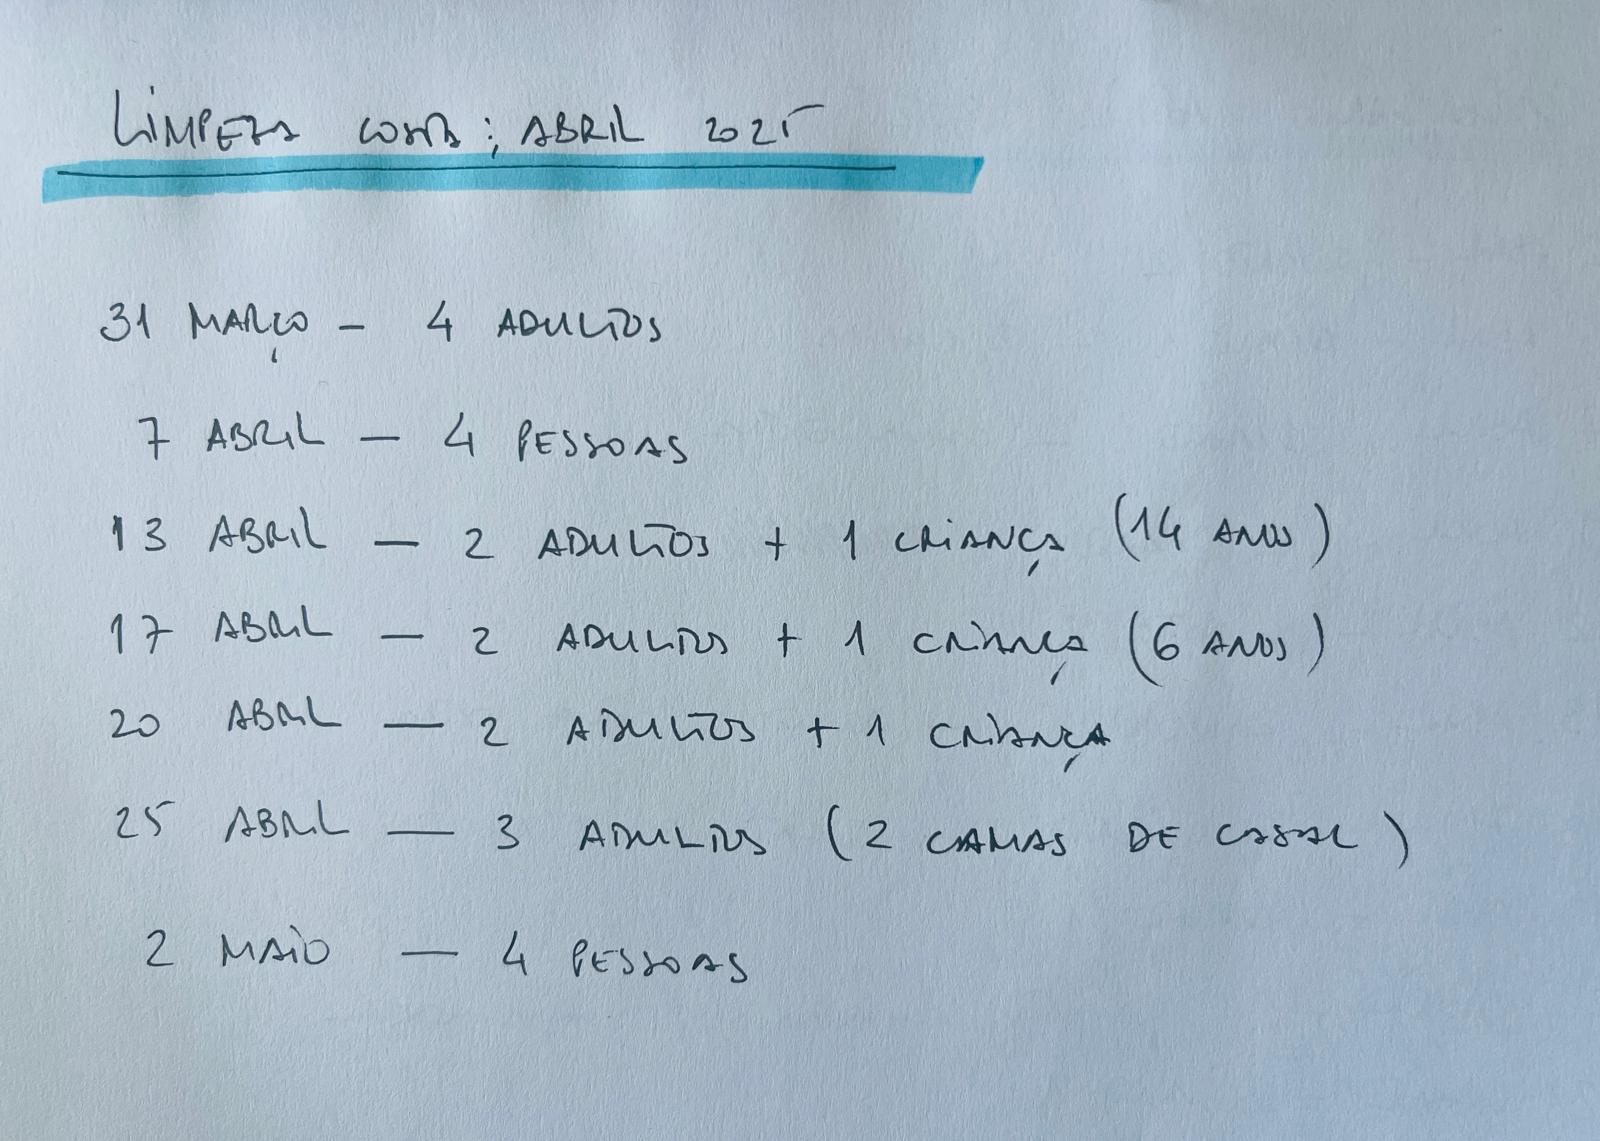 LIMPEZA COSTA; ABRIL 2025
31 MARÇO - 4 ADULTOS
7 ABRIL - 4 PESSOAS
13 ABRIL - 2 ADULTOS + 1 CRIANÇA (14 ANOS)
17 ABRIL - 2 ADULTOS + 1 CRIANÇA (6 ANOS)
20 ABRIL - 2 ADULTOS + 1 CRIANÇA
25 ABRIL - 3 ADULTOS (2 CAMAS DE CASAL)
2 MAIO - 4 PESSOAS